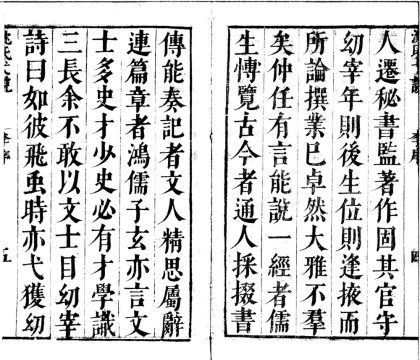 人遷秘書監著作固其官守
幼宰年則後生位則逢掖而
所論撰業已卓然大雅不羣
矣仲任有言能說一經者儒
生愽覽古今者通人採掇書
傳能奏記者文人精思屬辭
連篇章者鴻儒子玄亦言文
士多史才少史必有才學識
三長余不敢以文士目幼宰
詩曰如彼飛䖝時亦弋獲幼